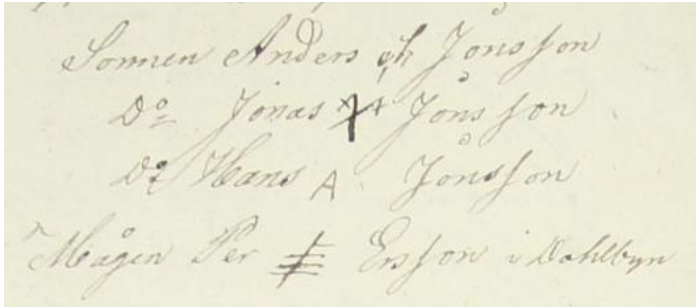 Sonnen Anders Jönsson
Do Jonas Jönsson
Do Hans A Jönsson
Mågen Per Ersson i Dahlbyn